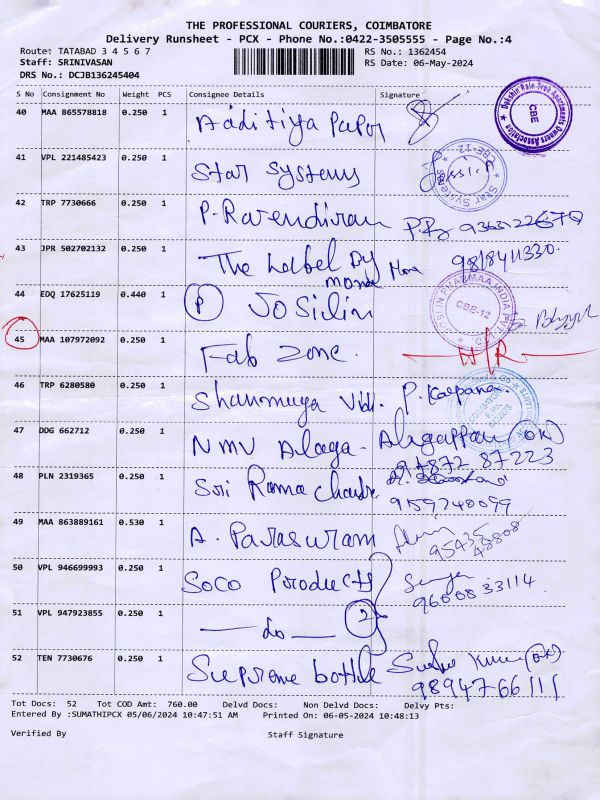 THE PROFESSIONAL COURIERS, COIMBATORE
Delivery Runsheet - PCX - Phone No.:0422-3505555 - Page No.:4
Route: TATABAD 3 4 5 6 7 RS No.: 1362454
Staff: SRINIVASAN RS Date: 06-May-2024
DRS No.: DCJB136245404
S No Consignment No Weight PCS Consignee Details Signature
40 MAA 865578818 0.250 1 Aaditiya Paper
Dakshin Rain Tree Apartments Owners Association CBE
41 VPL 221485423 0.250 1 Star Systems
Star Systems CBE-12
42 TRP 7730666 0.250 1 P. Ravendiran
43 JPR 502702132 0.250 1 The Label By 9818411330
44 EDQ 17625119 0.440 1 P Josilin
PHARMAA INDIA CBE-12
45 MAA 107972092 0.250 1 Fab Zone. N/R
46 TRP 6280580 0.250 1 Shanmuga Vidl. P. Kalpana
47 DDG 662712 0.250 1 NMV Alaga- Alagappan (ON)
97872 87223
48 PLN 2319365 0.250 1 Sri Rama Chandr
9159740099
49 MAA 863889161 0.530 1 A. Parasuram
95435 48808
50 VPL 946699993 0.250 1 Soco Products
9600833114
51 VPL 947923855 0.250 1 — do — 2
52 TEN 7730676 0.250 1 Supreme bottle
9894766111
Tot Docs: 52 Tot COD Amt: 760.00 Delvd Docs: Non Delvd Docs: Delvy Pts:
Entered By :SUMATHIPCX 05/06/2024 10:47:51 AM Printed On: 06-05-2024 10:48:13
Verified By Staff Signature